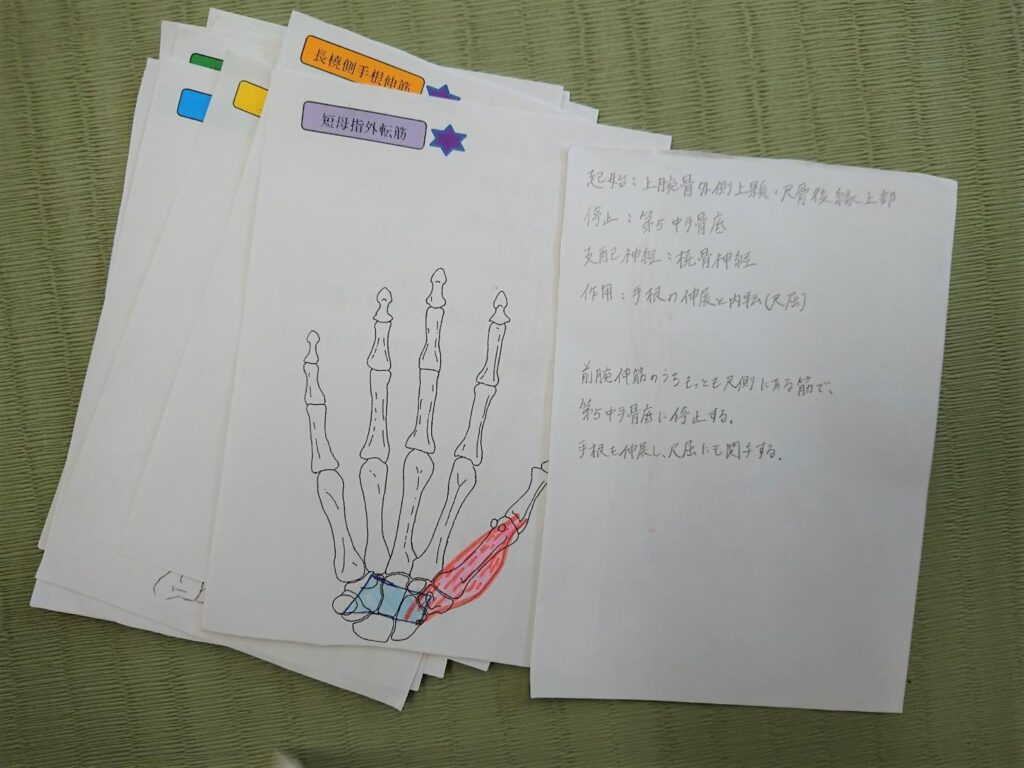 長橈側手根伸筋
短母指外転筋
起始：上腕骨外側上顆・尺骨後縁上部
停止：第5中手骨底
支配神経：橈骨神経
作用：手根の伸展と内転(尺屈)
前腕伸筋のうちもっとも尺側にある筋で、
第5中手骨底に停止する。
手根を伸展し、尺屈にも関与する。